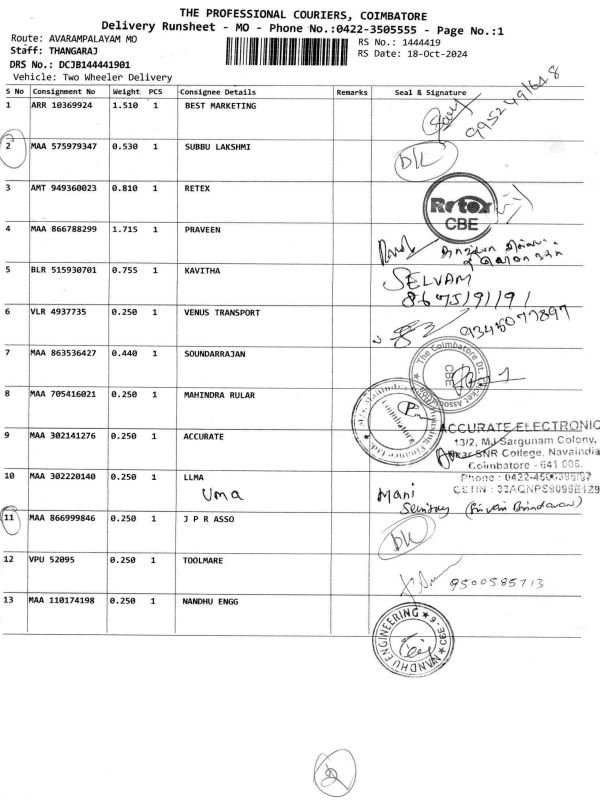 THE PROFESSIONAL COURIERS, COIMBATORE
Delivery Runsheet - MO - Phone No.:0422-3505555 - Page No.:1
Route: AVARAMPALAYAM MO
RS No.: 1444419
Staff: THANGARAJ
RS Date: 18-Oct-2024
DRS No.: DCJB144441901
Vehicle: Two Wheeler Delivery
S No Consignment No Weight PCS Consignee Details Remarks Seal & Signature
1 ARR 10369924 1.510 1 BEST MARKETING
9952491648
2 MAA 575979347 0.530 1 SUBBU LAKSHMI
DK
3 AMT 949360023 0.810 1 RETEX
Retex
CBE
4 MAA 866788299 1.715 1 PRAVEEN
5 BLR 515930701 0.755 1 KAVITHA
SELVAM
8675191191
6 VLR 4937735 0.250 1 VENUS TRANSPORT
9345077897
7 MAA 863536427 0.440 1 SOUNDARRAJAN
The Coimbatore Dt. Cricket Association
CBE
8 MAA 705416021 0.250 1 MAHINDRA RULAR
Coimbatore
9 MAA 302141276 0.250 1 ACCURATE
ACCURATE ELECTRONIC
13/2, MJ Sargunam Colony,
SNR College, Navaindia
Coimbatore - 641 006.
10 MAA 302220140 0.250 1 LLMA
Phone : 0422-4506396/97
Uma
Mani
11 MAA 866999846 0.250 1 J P R ASSO
DK
12 VPU 52095 0.250 1 TOOLMARE
9500585713
13 MAA 110174198 0.250 1 NANDHU ENGG
NANDHU ENGINEERING ★ CBE-6